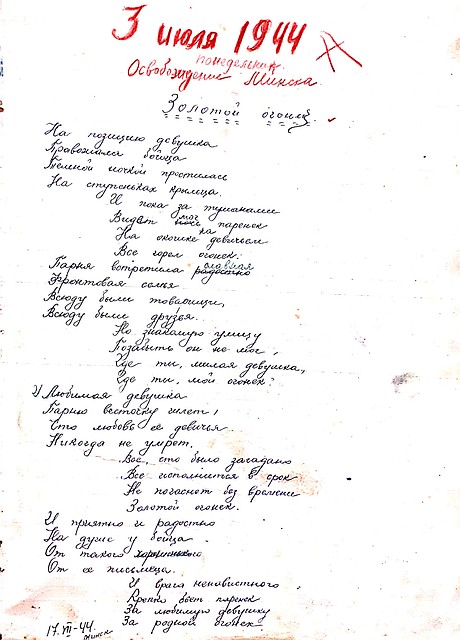 3 июля 1944
понедельник
Освобождение Минска
Золотой огонёк.
На позицию девушка
Провожала бойца
Темной ночкой простилась
На ступеньках крыльца.
И пока за туманами
Видеть мог паренек
На окошке на девичьем
Все горел огонек.
Парня встретила славная радостно
Фронтовая семья
Всюду были товарищи,
Всюду были друзья.
Но знакомую улицу
Позабыть он не мог,
Где ты, милая девушка,
Где ты, мой огонек?
Любимая девушка
Парню весточку шлет,
Что любовь ее девичья
Никогда не умрет.
Все, что было загадано
Все исполнится в срок
Не погаснет без времени
Золотой огонек.
И приятно и радостно
На душе у бойца.
От такого хорошенького
От ее письмеца.
И врага ненавистного
Крепко бьет паренек
За любимую девушку
За родной огонек
17.VII-44. Минск